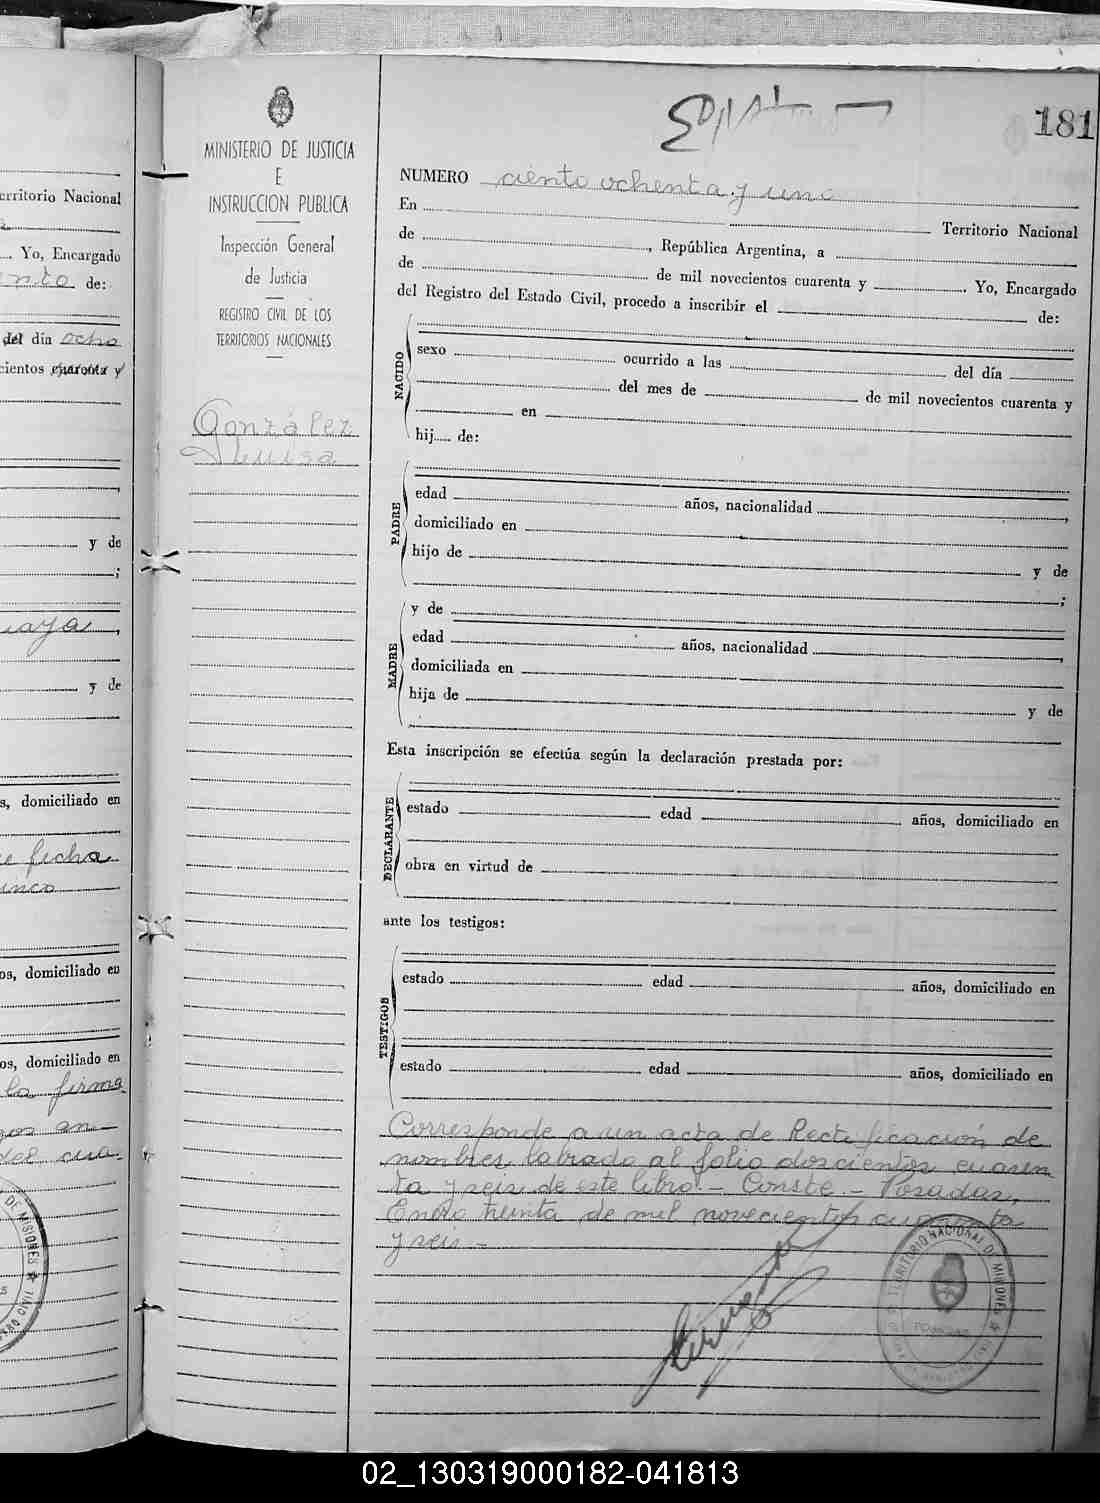 181
MINISTERIO DE JUSTICIA
E
INSTRUCCION PUBLICA
Inspección General
de Justicia
REGISTRO CIVIL DE LOS
TERRITORIOS NACIONALES
González
Luisa
NUMERO ciento ochenta y uno
En ........ Territorio Nacional
de ........, República Argentina, a ........
de ........ de mil novecientos cuarenta y ........ Yo, Encargado
del Registro del Estado Civil, procedo a inscribir el ........ de:
NACIDO
sexo ........ ocurrido a las ........ del día ........
........ del mes de ........ de mil novecientos cuarenta y
........ en ........
hij..... de:
PADRE
edad ........ años, nacionalidad ........,
domiciliado en ........
hijo de ........ y de
........;
MADRE
y de ........
edad ........ años, nacionalidad ........,
domiciliada en ........
hija de ........ y de
Esta inscripción se efectúa según la declaración prestada por:
DECLARANTE
estado ........ edad ........ años, domiciliado en
obra en virtud de ........
ante los testigos:
TESTIGOS
estado ........ edad ........ años, domiciliado en
estado ........ edad ........ años, domiciliado en
Corresponde a un acta de Rectificación de
nombres, labrada al folio doscientos cuaren
ta y seis de este libro.- Conste.- Posadas,
Enero treinta de mil novecientos cuarenta
y seis.-
TERRITORIO NACIONAL DE MISIONES
POSADAS
erritorio Nacional
Yo, Encargado
ento de:
del día ocho
cientos cuarenta y
y de
;
uaya,
y de
s, domiciliado en
fecha
inco
os, domiciliado en
os, domiciliado en
la firma
an-
del cua-
DE MISIONES
02_130319000182-041813